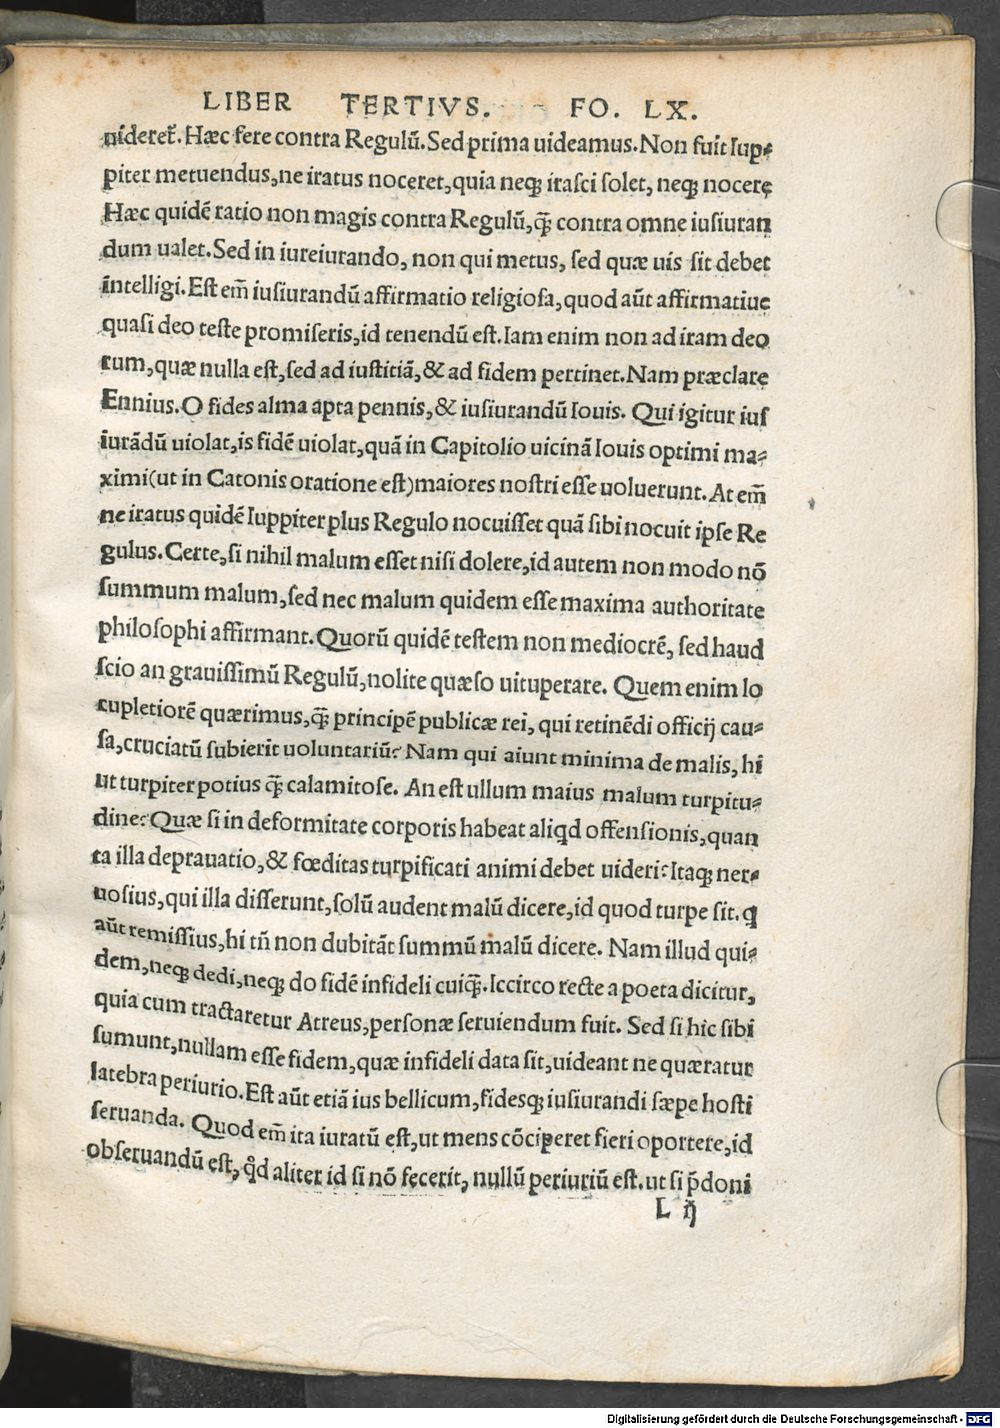 LIBER TERTIVS. FO. LX.
uideret᷑. Hæc fere contra Regulū. Sed prima uideamus. Non fuit Iup-
piter metuendus, ne iratus noceret, quia neqꝫ irasci solet, neqꝫ nocere
Hæc quidē ratio non magis contra Regulū, q̄ꝫ contra omne iusiuran
dum ualet. Sed in iureiurando, non qui metus, sed quæ uis sit debet
intelligi. Est em̄ iusiurandū affirmatio religiosa, quod aūt affirmatiue
quasi deo teste promiseris, id tenendū est. Iam enim non ad iram deo
rum, quæ nulla est, sed ad iustitiā, & ad fidem pertinet. Nam præclare
Ennius. O fides alma apta pennis, & iusiurandū Iouis. Qui igitur ius
iurādū uiolat, is fidē uiolat, quā in Capitolio uicinā Iouis optimi ma-
ximi (ut in Catonis oratione est) maiores nostri esse uoluerunt. At em̄
ne iratus quidē Iuppiter plus Regulo nocuisset quā sibi nocuit ipse Re
gulus. Certe, si nihil malum esset nisi dolere, id autem non modo nō
summum malum, sed nec malum quidem esse maxima authoritate
philosophi affirmant. Quorū quidē testem non mediocrē, sed haud
scio an grauissimū Regulū, nolite quæso uituperare. Quem enim lo
cupletiorē quærimus, q̄ꝫ principē publicæ rei, qui retinēdi officij cau-
sa, cruciatū subierit uoluntariū? Nam qui aiunt minima de malis, hi
ut turpiter potius q̄ꝫ calamitose. An est ullum maius malum turpitu-
dine? Quæ si in deformitate corporis habeat aliqd offensionis, quan
ta illa deprauatio, & fœditas turpificati animi debet uideri? Itaqꝫ ner-
uosius, qui illa disserunt, solū audent malū dicere, id quod turpe sit. q
aūt remissius, hi tn̄ non dubitāt summū malū dicere. Nam illud qui-
dem, neqꝫ dedi, neqꝫ do fidē infideli cuiq̄ꝫ. Iccirco recte a poeta dicitur,
quia cum tractaretur Atreus, personæ seruiendum fuit. Sed si hic sibi
sumunt, nullam esse fidem, quæ infideli data sit, uideant ne quæratur
latebra periurio. Est aūt etiā ius bellicum, fidesqꝫ iusiurandi sæpe hosti
seruanda. Quod em̄ ita iuratū est, ut mens cōciperet fieri oportere, id
obseruandū est, qd aliter id si nō fecerit, nullū periuriū est. ut si p̄doni
L ij
Digitalisierung gefördert durch die Deutsche Forschungsgemeinschaft - DFG